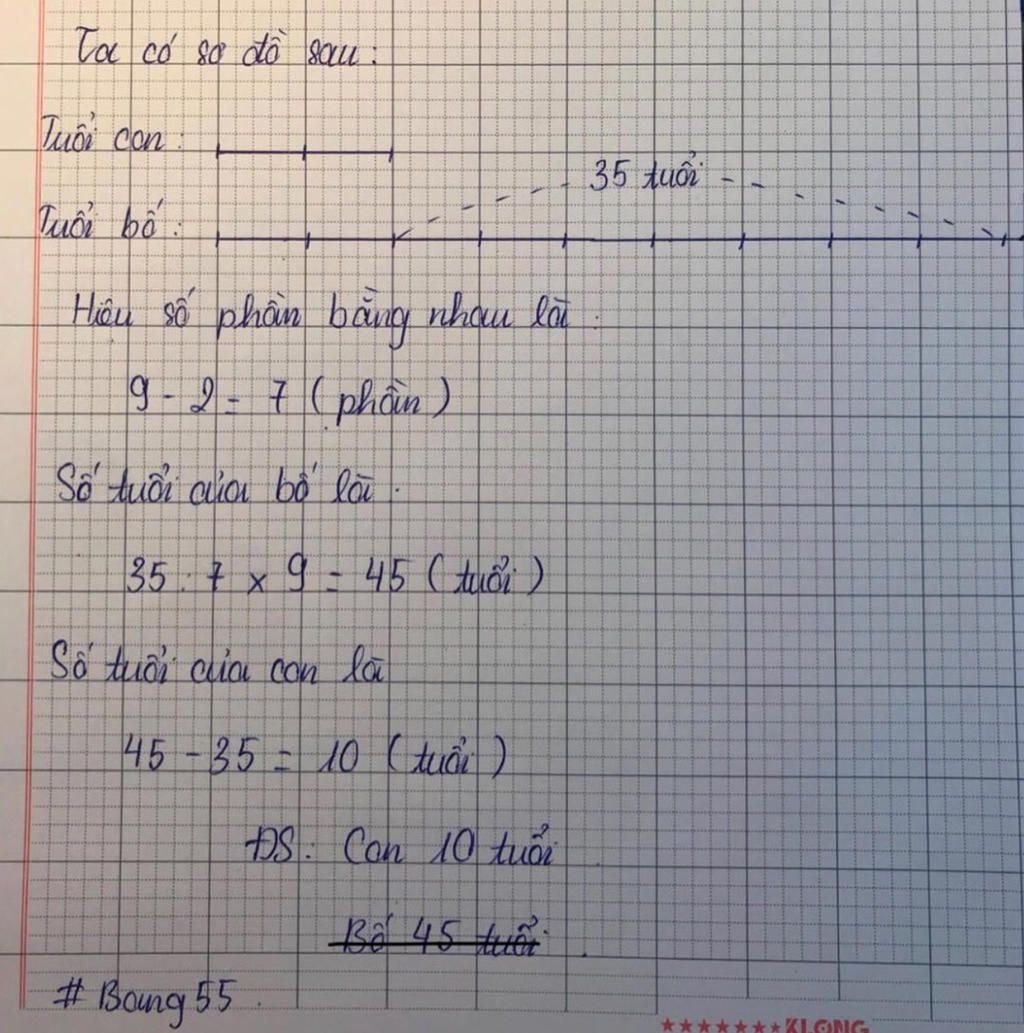 Ta có sơ đồ sau:
Tuổi con:
35 tuổi
Tuổi bố:
Hiệu số phần bằng nhau là:
9 - 2 = 7 (phần)
Số tuổi của bố là:
35 : 7 x 9 = 45 (tuổi)
Số tuổi của con là
45 - 35 = 10 (tuổi)
ĐS: Con 10 tuổi
Bố 45 tuổi.
# Bang 55.
★★★★★★★ KLONG